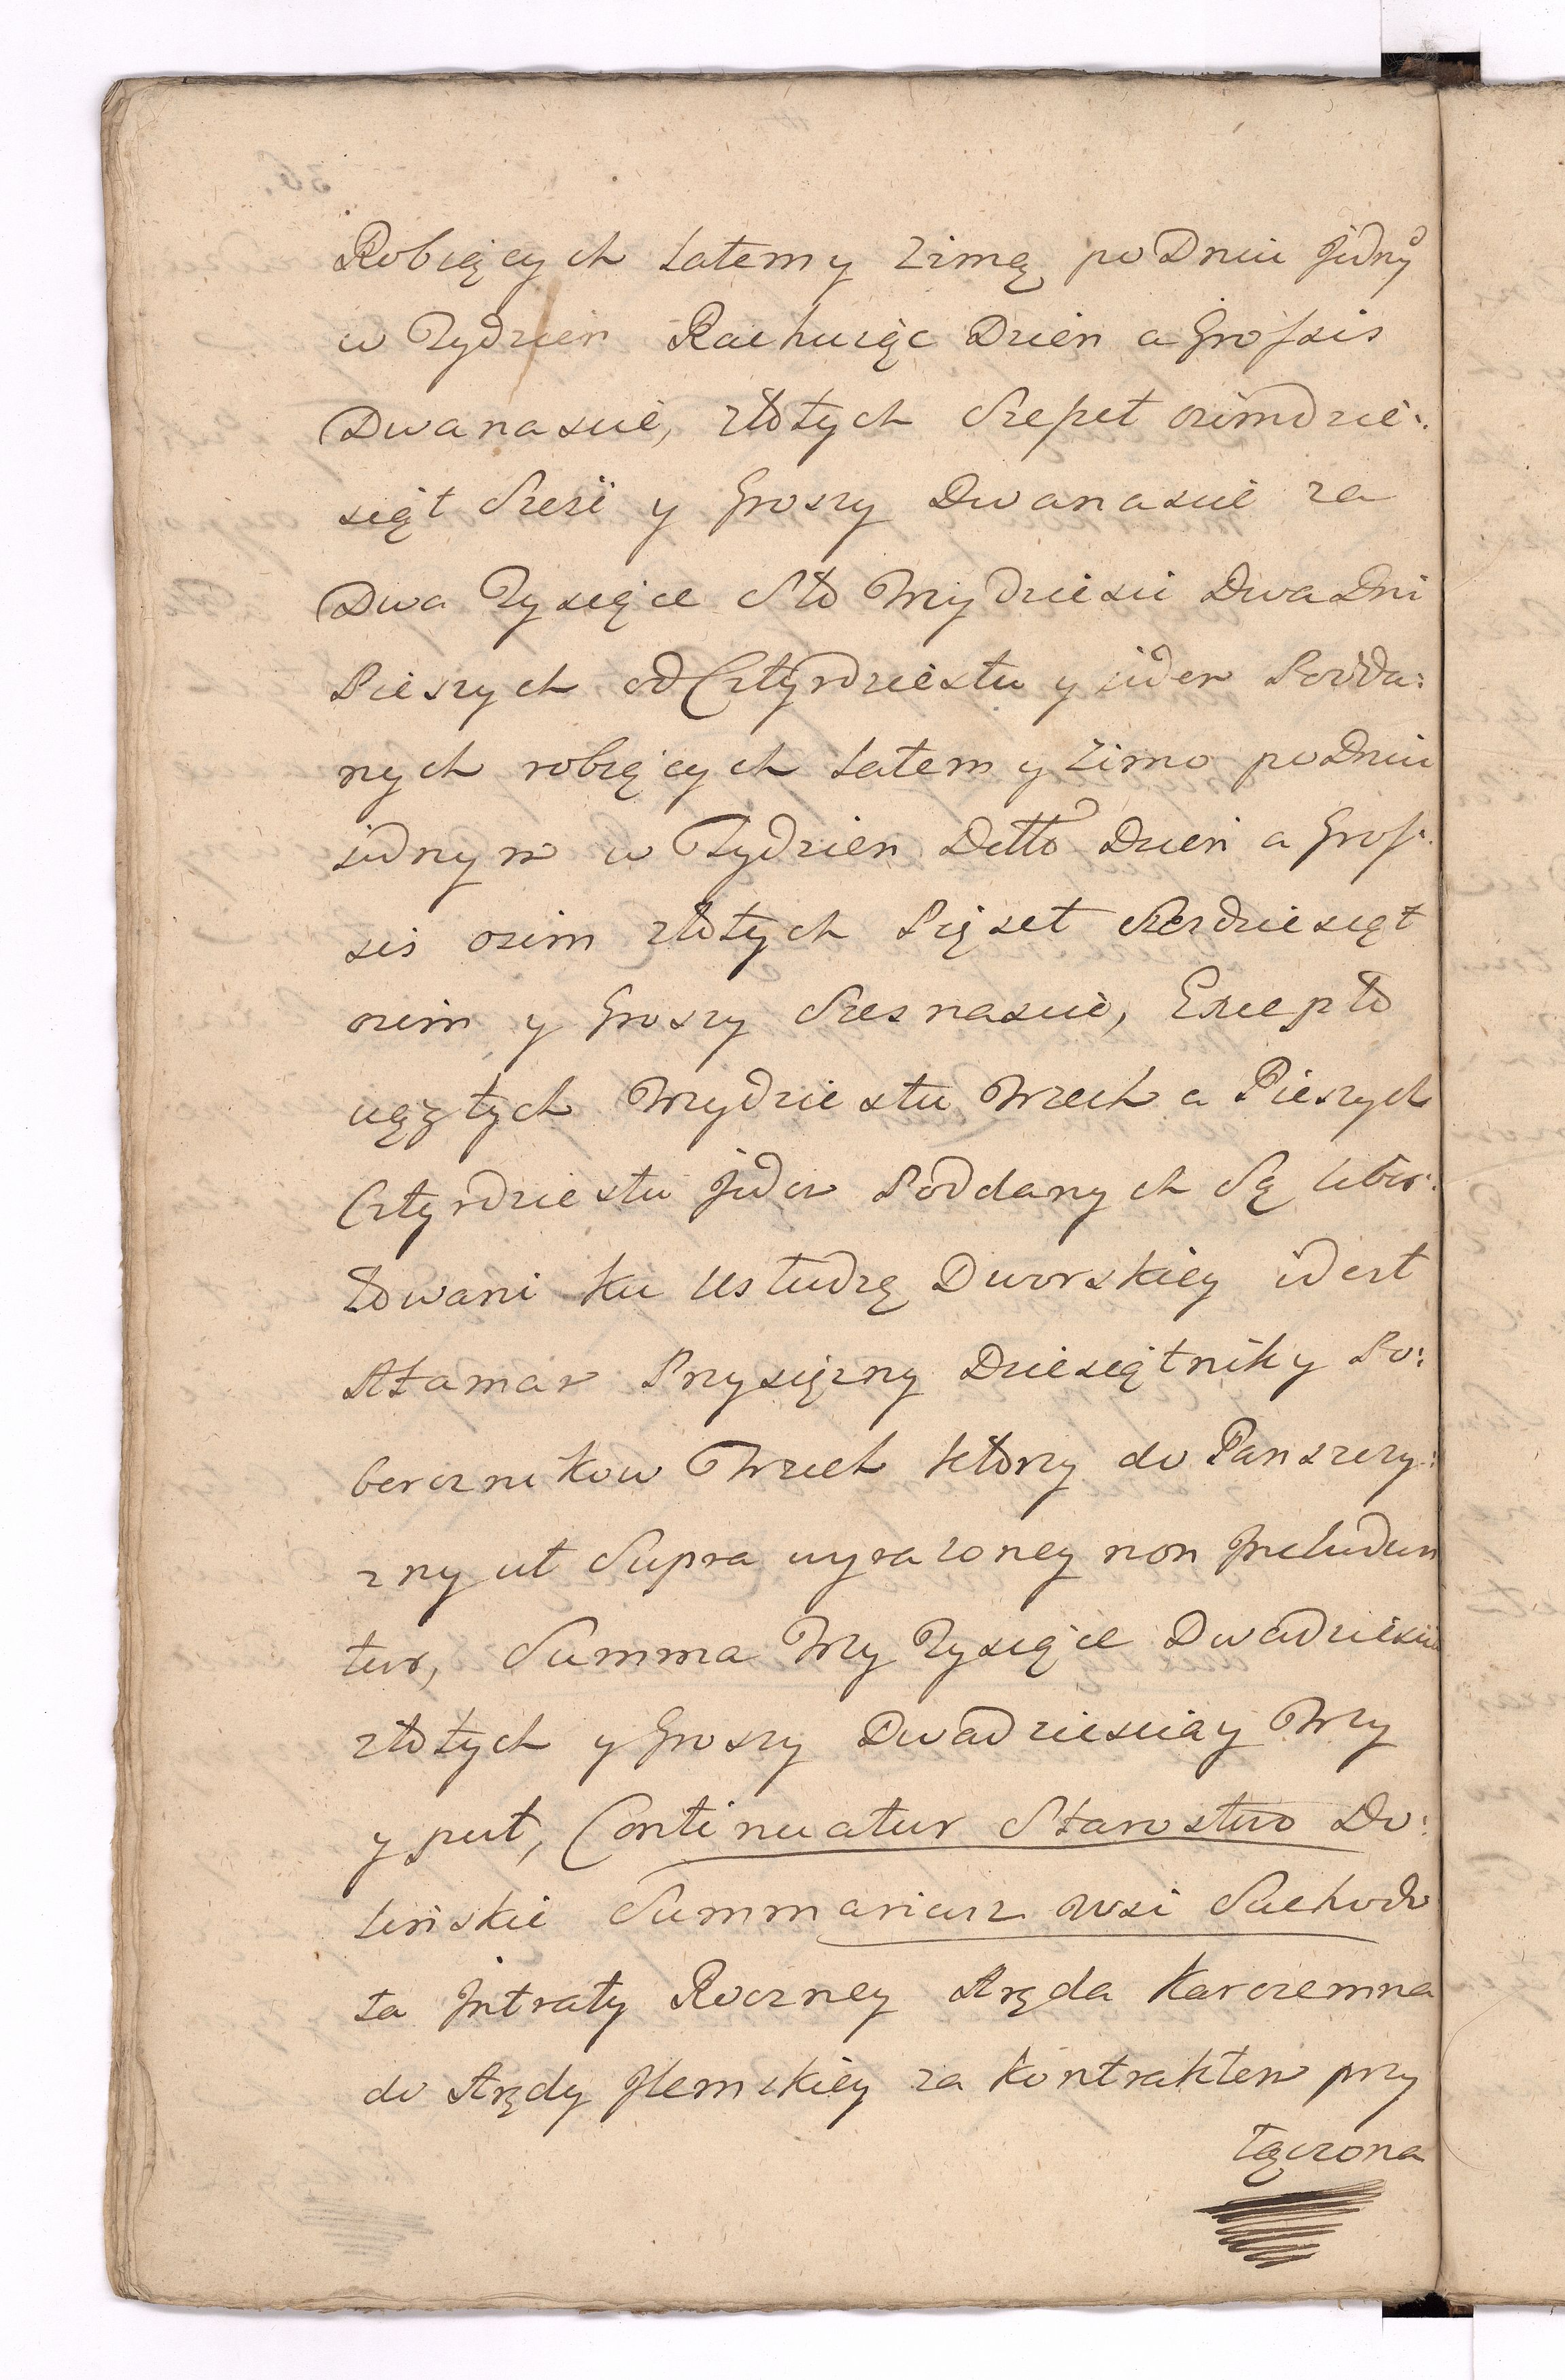 Robiących Łatem y Zimą po Dniu Jedny
w Tydzień Rachuiąc Dzień a Grossis
Dwanascie, złotych Szesset osimdzie:
siąt Szesć y Groszy Dwanascie za
Dwa Tysiące Sto Trzydziesci Dwa Dni
Pieszych od Cztyrdziestu y ieden Podda:
nych robiących Łatem y Zimo po Dniu
iednym w Tydzien Detto Dzień a Gros:
sis osim złotych Pięset Szesdziesiąt
osim y Groszy Szesnascie, Excepto
ciągłych Trzydziestu Trzech a Pieszych
Cztyrdziestu Jeden Poddanych Są Libe:
towani ku Usłudze Dworskiey idest
Ataman Przysięzny Dziesiątnik y Po:
bereznikow Trzech którzy do Panszczy:
zny ut Supra wyrazoney non Includun
tur, Summa Trzy Tysiące Dwadziescia
złotych y Groszy Dwadziescia y Trzy
y puł, Continuatur Starostwo Do:
linskie Summariusz wsi Suchodo
ła Jntraty Roczney Aręda Karczemna
do Arędy Jlemskiey za Kontraktem przy
łączona